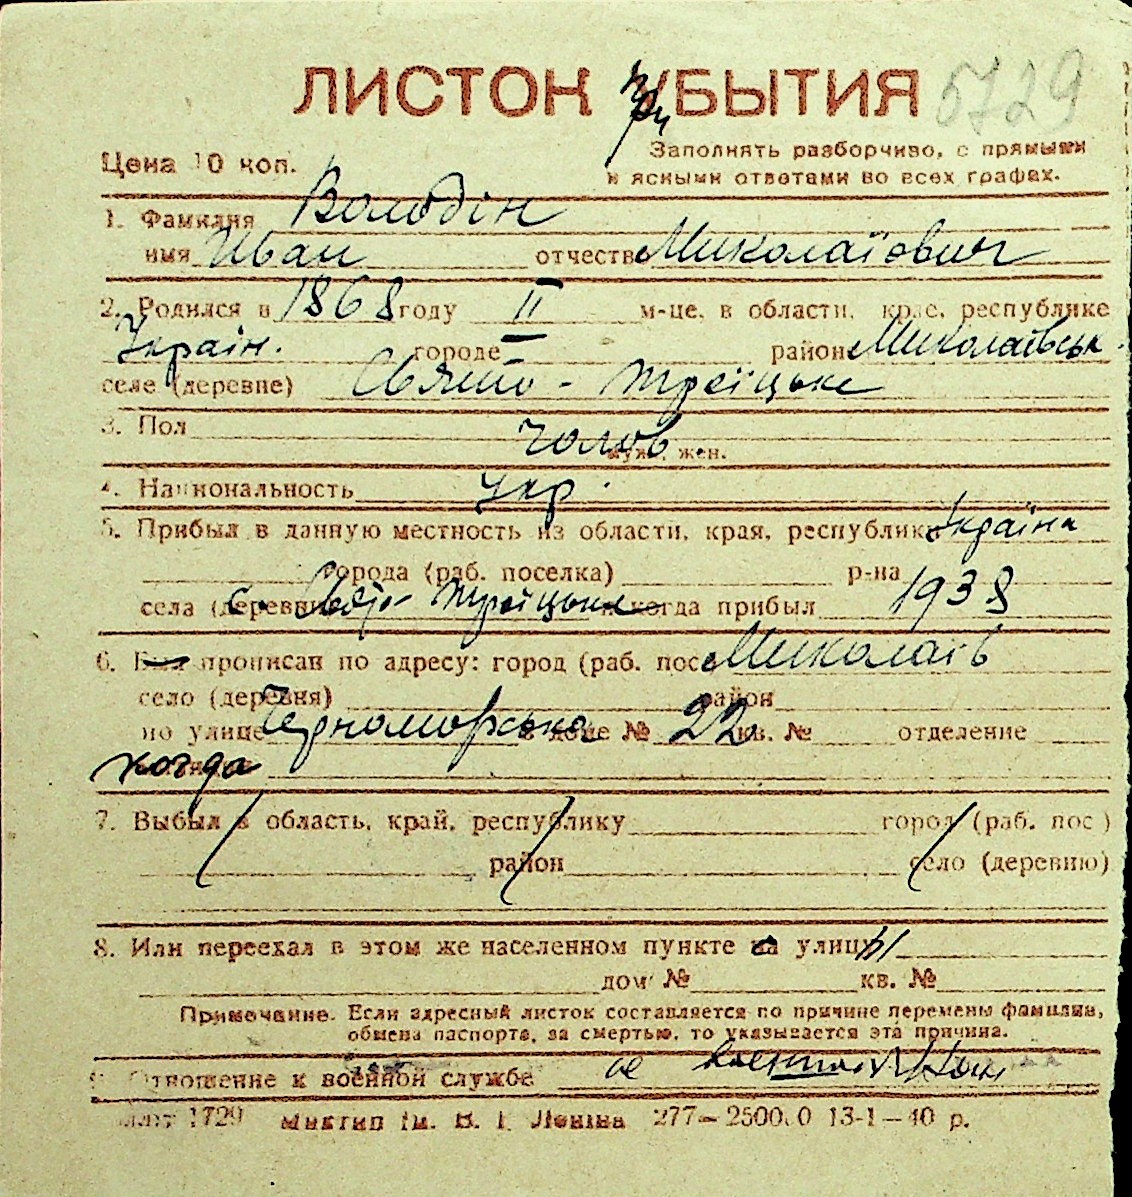 ЛИСТОК УБЫТИЯ 5729
При
Цена 10 коп.
Заполнять разборчиво, с прямыми
и ясными ответами во всех графах.
1. Фамилия Володін
имя Иван отчество Миколаїович
2. Родился в 1868 году II м-це, в области, крае, республике
Україн. городе — районе Миколаївськ.
селе (деревне) Свято-Троїцьке
3. Пол чолов
муж., жен.
4. Национальность укр.
5. Прибыл в данную местность из области, края, республики Україна
города (раб. поселка) р-на
села (деревни) с. Свято-Троїцьке и когда прибыл 1938
6. Был прописан по адресу: город (раб. пос. Миколаїв
село (деревня) район
по улице Черноморська в доме № 22 кв. № отделение
когда
7. Выбыл в область, край, республику город (раб. пос)
район село (деревню)
8. Или переехал в этом же населенном пункте на улицы
дом № кв. №
Примечание. Если адресный листок составляется по причине перемены фамилии,
обмена паспорта, за смертью, то указывается эта причина.
9. Отношение к военной службе не
1729 Миктип ім. В. І. Леніна 277—25000 13-1—40 р.